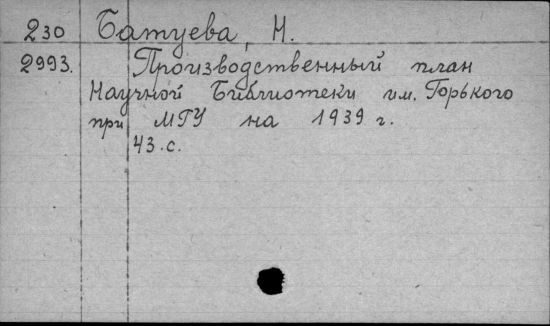 230 Батуева, Н.
2993. Производственный план
Научной Библиотеки им. Горького
при МГУ на 1939 г.
43.с.